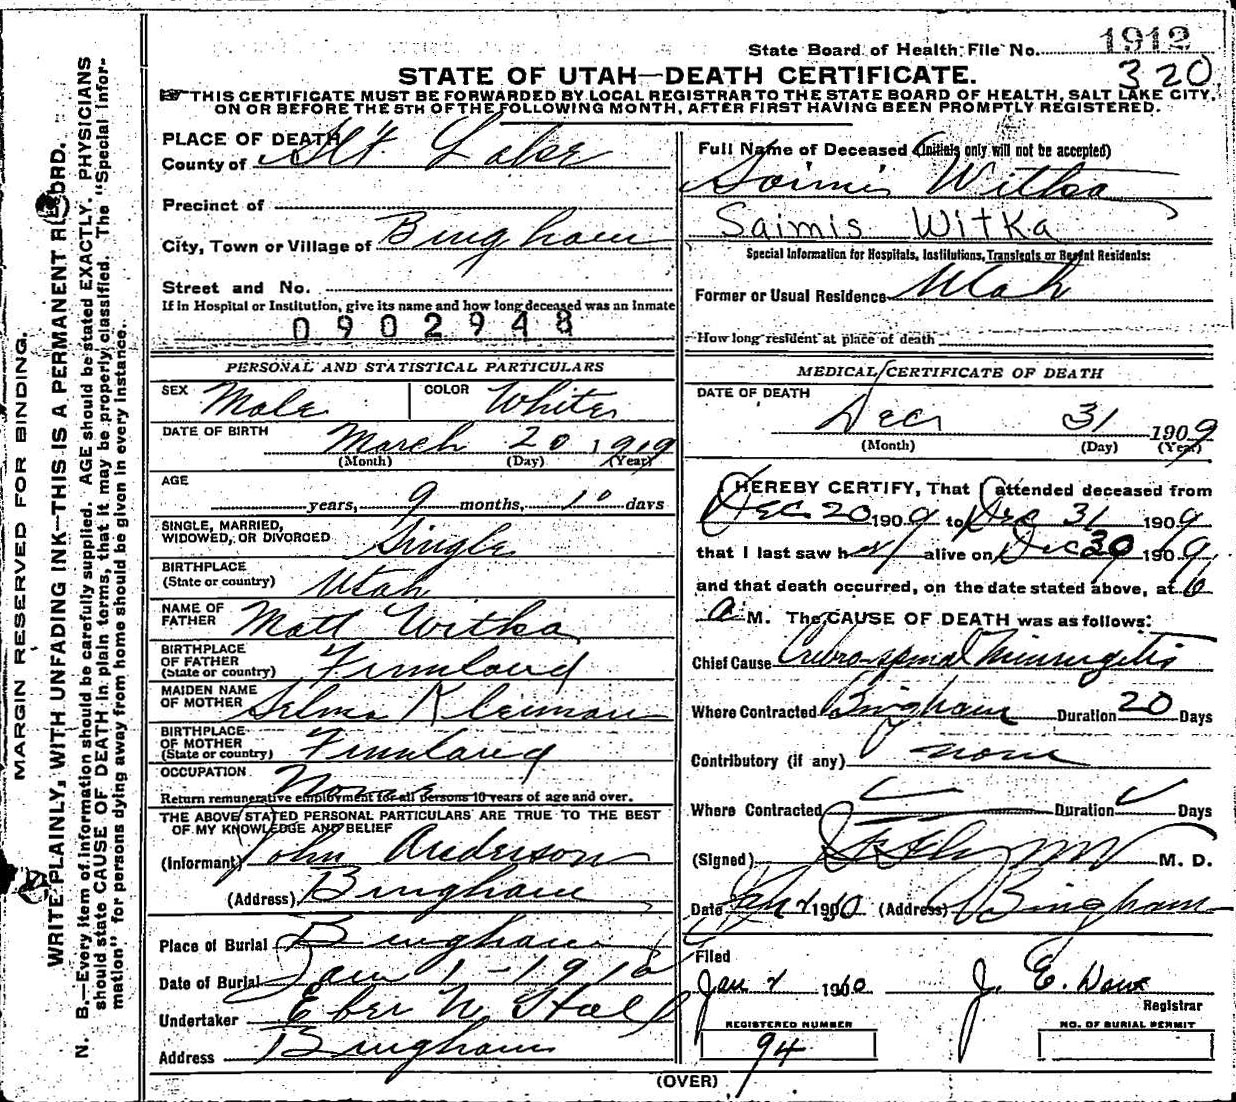 State Board of Health File No. 1912
320
STATE OF UTAH—DEATH CERTIFICATE.
THIS CERTIFICATE MUST BE FORWARDED BY LOCAL REGISTRAR TO THE STATE BOARD OF HEALTH, SALT LAKE CITY,
ON OR BEFORE THE 5TH OF THE FOLLOWING MONTH, AFTER FIRST HAVING BEEN PROMPTLY REGISTERED.
PLACE OF DEATH
County of Slt Lake
Precinct of
City, Town or Village of Bingham
Street and No.
If in Hospital or Institution, give its name and how long deceased was an inmate
0902948
Full Name of Deceased (Initials only will not be accepted)
Saimis Witka
Saimis Witka
Special Information for Hospitals, Institutions, Transients or Recent Residents:
Former or Usual Residence Utah
How long resident at place of death
PERSONAL AND STATISTICAL PARTICULARS
SEX Male COLOR White
DATE OF BIRTH March 20 1909
(Month) (Day) (Year)
AGE
years, 9 months, 10 days
SINGLE, MARRIED,
WIDOWED, OR DIVORCED Single
BIRTHPLACE
(State or country) Utah
NAME OF
FATHER Matt Witka
BIRTHPLACE
OF FATHER
(State or country) Finnland
MAIDEN NAME
OF MOTHER Selma Kleimau
BIRTHPLACE
OF MOTHER
(State or country) Finnland
OCCUPATION None
Return remunerative employment for all persons 10 years of age and over.
THE ABOVE STATED PERSONAL PARTICULARS ARE TRUE TO THE BEST
OF MY KNOWLEDGE AND BELIEF
(Informant) John Anderson
(Address) Bingham
Place of Burial Bingham
Date of Burial Jan 1-1910
Undertaker Eber N. Hall
Address Bingham
MEDICAL CERTIFICATE OF DEATH
DATE OF DEATH
Dec 31 1909
(Month) (Day) (Year)
I HEREBY CERTIFY, That I attended deceased from
Dec. 20 1909 to Dec 31 1909
that I last saw her alive on Dec 30 1909,
and that death occurred, on the date stated above, at 6
a M. The CAUSE OF DEATH was as follows:
Chief Cause Crebro-spinal Miningitis
Where Contracted Bingham Duration 20 Days
Contributory (if any) none
Where Contracted Duration Days
(Signed) M. D.
Date Jan 1 1910 (Address) Bingham
Filed
Jan 1 1910 J. E.
Registrar
REGISTERED NUMBER
94
NO. OF BURIAL PERMIT
(OVER)
MARGIN RESERVED FOR BINDING.
WRITE PLAINLY, WITH UNFADING INK—THIS IS A PERMANENT RECORD.
N. B.—Every item of information should be carefully supplied. AGE should be stated EXACTLY. PHYSICIANS
should state CAUSE OF DEATH in plain terms, that it may be properly classified. The "Special Infor-
mation" for persons dying away from home should be given in every instance.